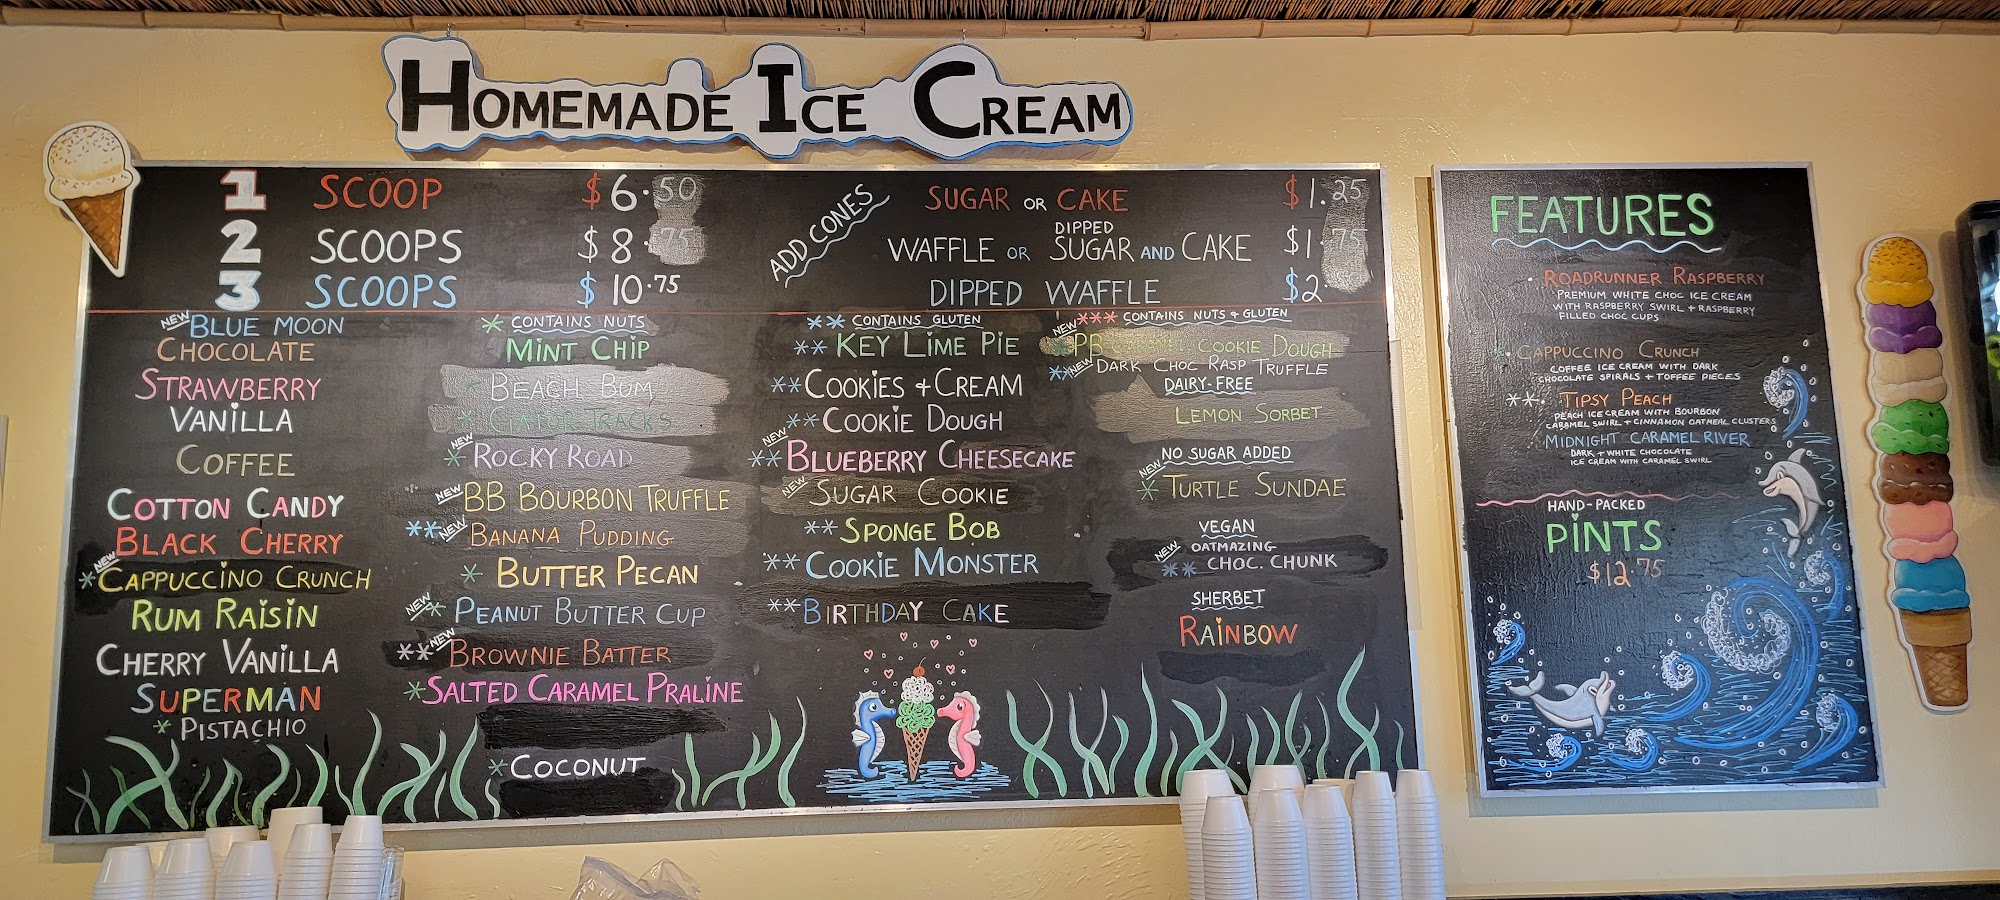 HOMEMADE ICE CREAM
1 SCOOP $6.50
2 SCOOPS $8.75
3 SCOOPS $10.75
ADD CONES
SUGAR OR CAKE $1.25
DIPPED
WAFFLE OR SUGAR AND CAKE $1.75
DIPPED WAFFLE $2.
NEW BLUE MOON
CHOCOLATE
STRAWBERRY
VANILLA
COFFEE
COTTON CANDY
BLACK CHERRY
NEW
*CAPPUCCINO CRUNCH
RUM RAISIN
CHERRY VANILLA
SUPERMAN
* PISTACHIO
* CONTAINS NUTS
MINT CHIP
BEACH BUM
* GATOR TRACKS
NEW
* ROCKY ROAD
NEW BB BOURBON TRUFFLE
** NEW BANANA PUDDING
* BUTTER PECAN
NEW * PEANUT BUTTER CUP
** NEW BROWNIE BATTER
*SALTED CARAMEL PRALINE
* COCONUT
** CONTAINS GLUTEN
** KEY LIME PIE
**COOKIES + CREAM
**COOKIE DOUGH
NEW
** BLUEBERRY CHEESECAKE
NEW SUGAR COOKIE
** SPONGE BOB
** COOKIE MONSTER
**BIRTHDAY CAKE
*** CONTAINS NUTS & GLUTEN
NEW
PB CARAMEL COOKIE DOUGH
** NEW DARK CHOC RASP TRUFFLE
DAIRY-FREE
LEMON SORBET
NO SUGAR ADDED
NEW
* TURTLE SUNDAE
VEGAN
NEW OATMAZING
** CHOC. CHUNK
SHERBET
RAINBOW
FEATURES
• ROADRUNNER RASPBERRY
PREMIUM WHITE CHOC ICE CREAM
WITH RASPBERRY SWIRL + RASPBERRY
FILLED CHOC CUPS
* CAPPUCCINO CRUNCH
COFFEE ICE CREAM WITH DARK
CHOCOLATE SPIRALS + TOFFEE PIECES
**• TIPSY PEACH
PEACH ICE CREAM WITH BOURBON
CARAMEL SWIRL + CINNAMON OATMEAL CLUSTERS
MIDNIGHT CARAMEL RIVER
DARK + WHITE CHOCOLATE
ICE CREAM WITH CARAMEL SWIRL
HAND-PACKED
PINTS
$12.75